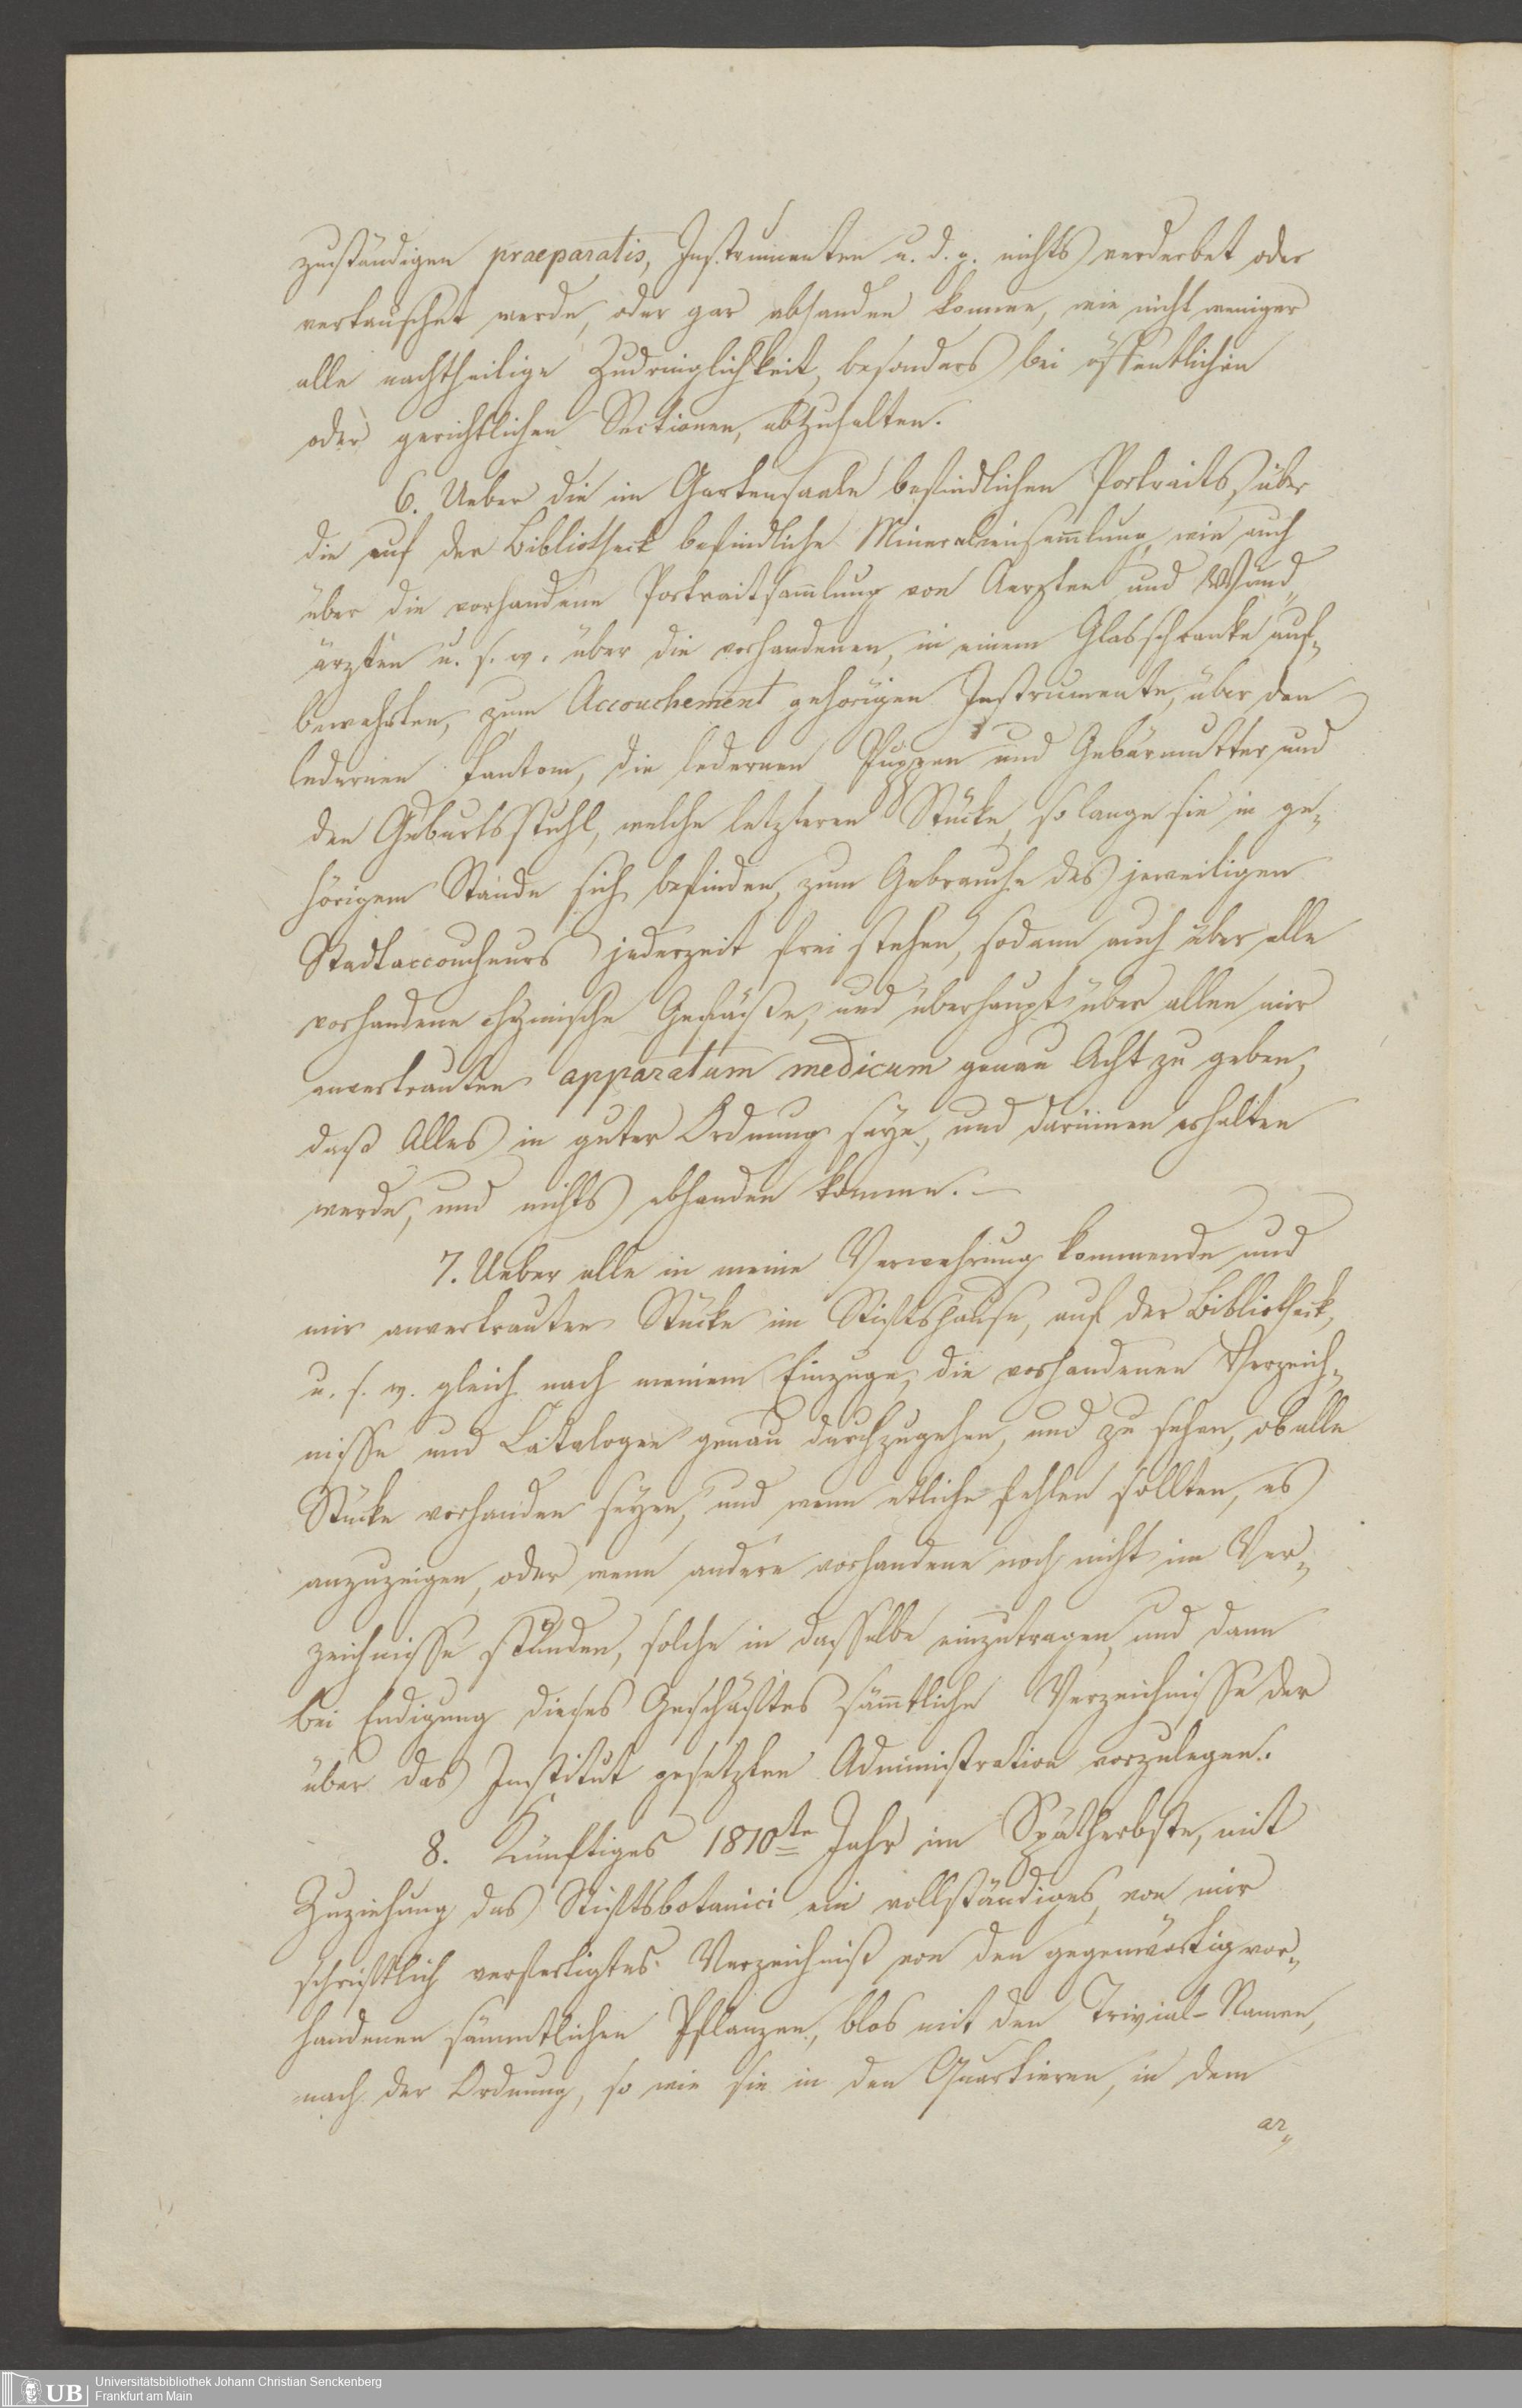 zuständigen praeparatis, Instrumenten u. d. g. nichts verderbet oder
vertauschet werde, oder gar abhanden komme, wie nicht weniger
alle nachtheilige Zudringlichkeit, besonders bei öffentlichen
oder gerichtlichen Sectionen, abzuhalten.
6. Ueber die im Gartensaale befindlichen Portraits, über
die auf der Bibliotheck befindliche Mineraliensam̄lung, wie auch
über die vorhandene Portraitsam̄lung von Aerzten und Wund„
ärzten u. s. w. über die vorhandenen, in einem Glasschranke auf„
bewahrten, zum Accouchement gehörigen Instrumente, über den
ledernen Fantom, die ledernen Puppen und Gebärmutter, und
den Geburtsstuhl, welche letzteren Stücke, so lange sie in ge„
hörigem Stande sich befinden, zum Gebrauche des jeweiligen
Stadtaccoucheurs jederzeit frei stehen, sodann auch über alle
vorhandene chymische Gefäße, und überhaupt über allen mir
anvertrauten apparatum medicum genau Acht zu geben,
daß Alles in guter Ordnung seye, und darinnen erhalten
werde, und nichts abhanden komme. —
7. Ueber alle in meine Verwahrung kommende und
mir anvertrauten Stücke im Stiftshause, auf der Bibliotheck,
u. s. w. gleich nach meinem Einzuge, die vorhandenen Verzeich„
nisse und Catalogen genau durchzugehen, und zu sehen, ob alle
Stücke vorhanden seyen, und wenn etliche fehlen sollten, es
anzuzeigen, oder wenn andere vorhandene noch nicht im Ver„
zeichnisse stünden, solche in dasselbe einzutragen, und dann
bei Endigung dieses Geschäftes säm̄tliche Verzeichnisse der
über das Institut gesetzten Administration vorzulegen.
8. Künftiges 1810te Jahr im Spätherbste, mit
Zuziehung des Stiftsbotanici ein vollständiges, von mir
schriftlich verfertigtes Verzeichniß von den gegenwärtig vor„
handenen sämmtlichen Pflanzen, blos mit den Trivial-Namen,
nach der Ordnung, so wie sie in den Quartieren, in dem
ar„
UB
Universitätsbibliothek Johann Christian Senckenberg
Frankfurt am Main